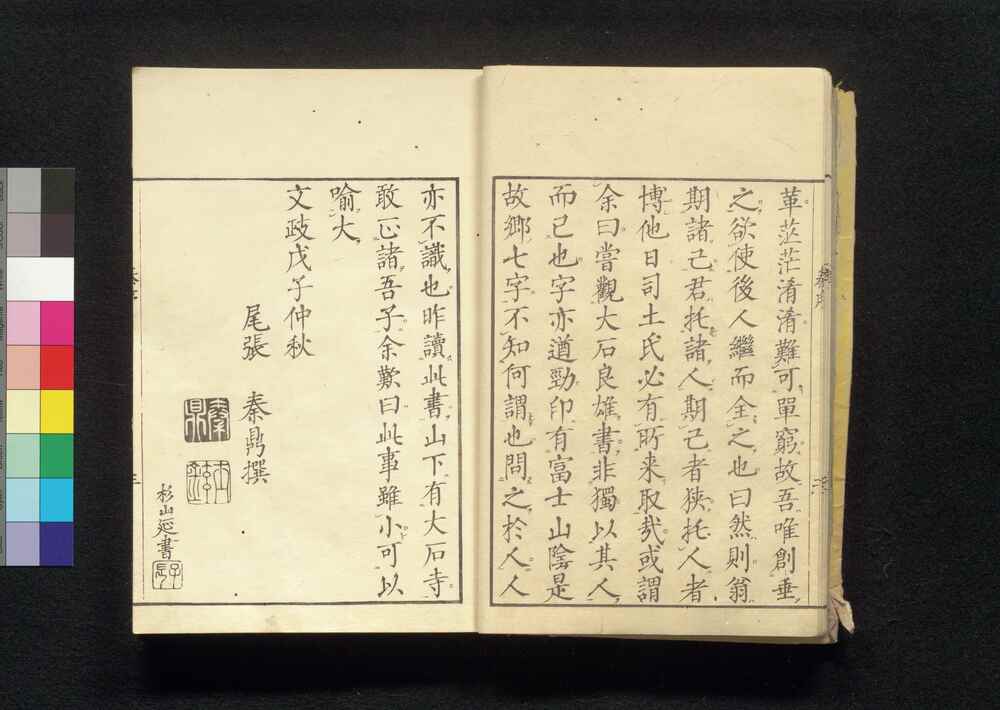 革茫茫淆淆難可單窮故吾唯創垂
之欲使後人繼而全之也曰然則翁
期諸己君托諸人期己者狹托人者
博他日司土氏必有所来取哉或謂
余曰嘗觀大石良雄書非獨以其人
而已也字亦遒勁印有富士山陰是
故鄉七字不知何謂也問之於人人
亦不識也昨讀此書山下有大石寺
敢正諸吾子余歎曰此事雖小可以
喻大
文政戊子仲秋
尾張 秦鼎撰
秦鼎
杉山延書